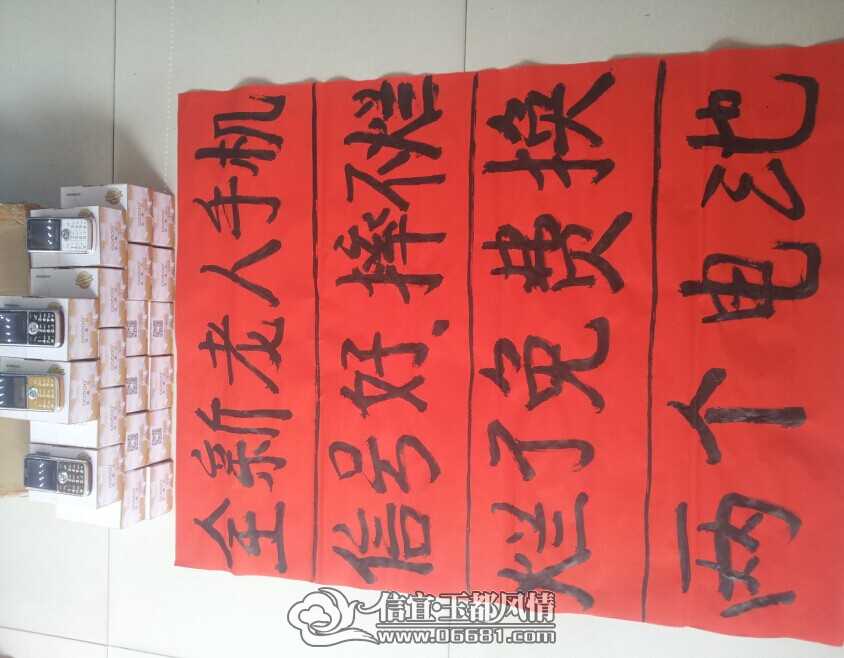 全新老人手机
信号好、摔不烂
烂了免费换
两个电池
信宜·玉都风情
www.06681.com